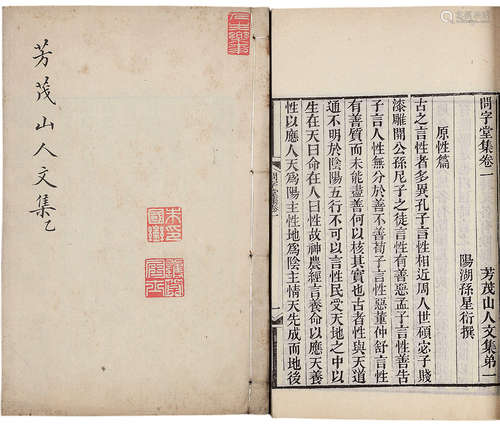 芳茂山人文集 乙
問字堂集卷一
芳茂山人文集第一
陽湖孫星衍撰
原性篇
古之言性者多異孔子言性相近周人世碩宓子賤
漆雕開公孫尼子之徒言性有善惡孟子言性善告
子言人性無分於善不善荀子言性惡董仲舒言性
有善質而未能盡善何以核其實也古者性與天道
通不明於陰陽五行不可以言性民受天地之中以
生在天曰命在人曰性故神農經言養命以應天養
性以應人天為陽主性地為陰主情天先成而地後